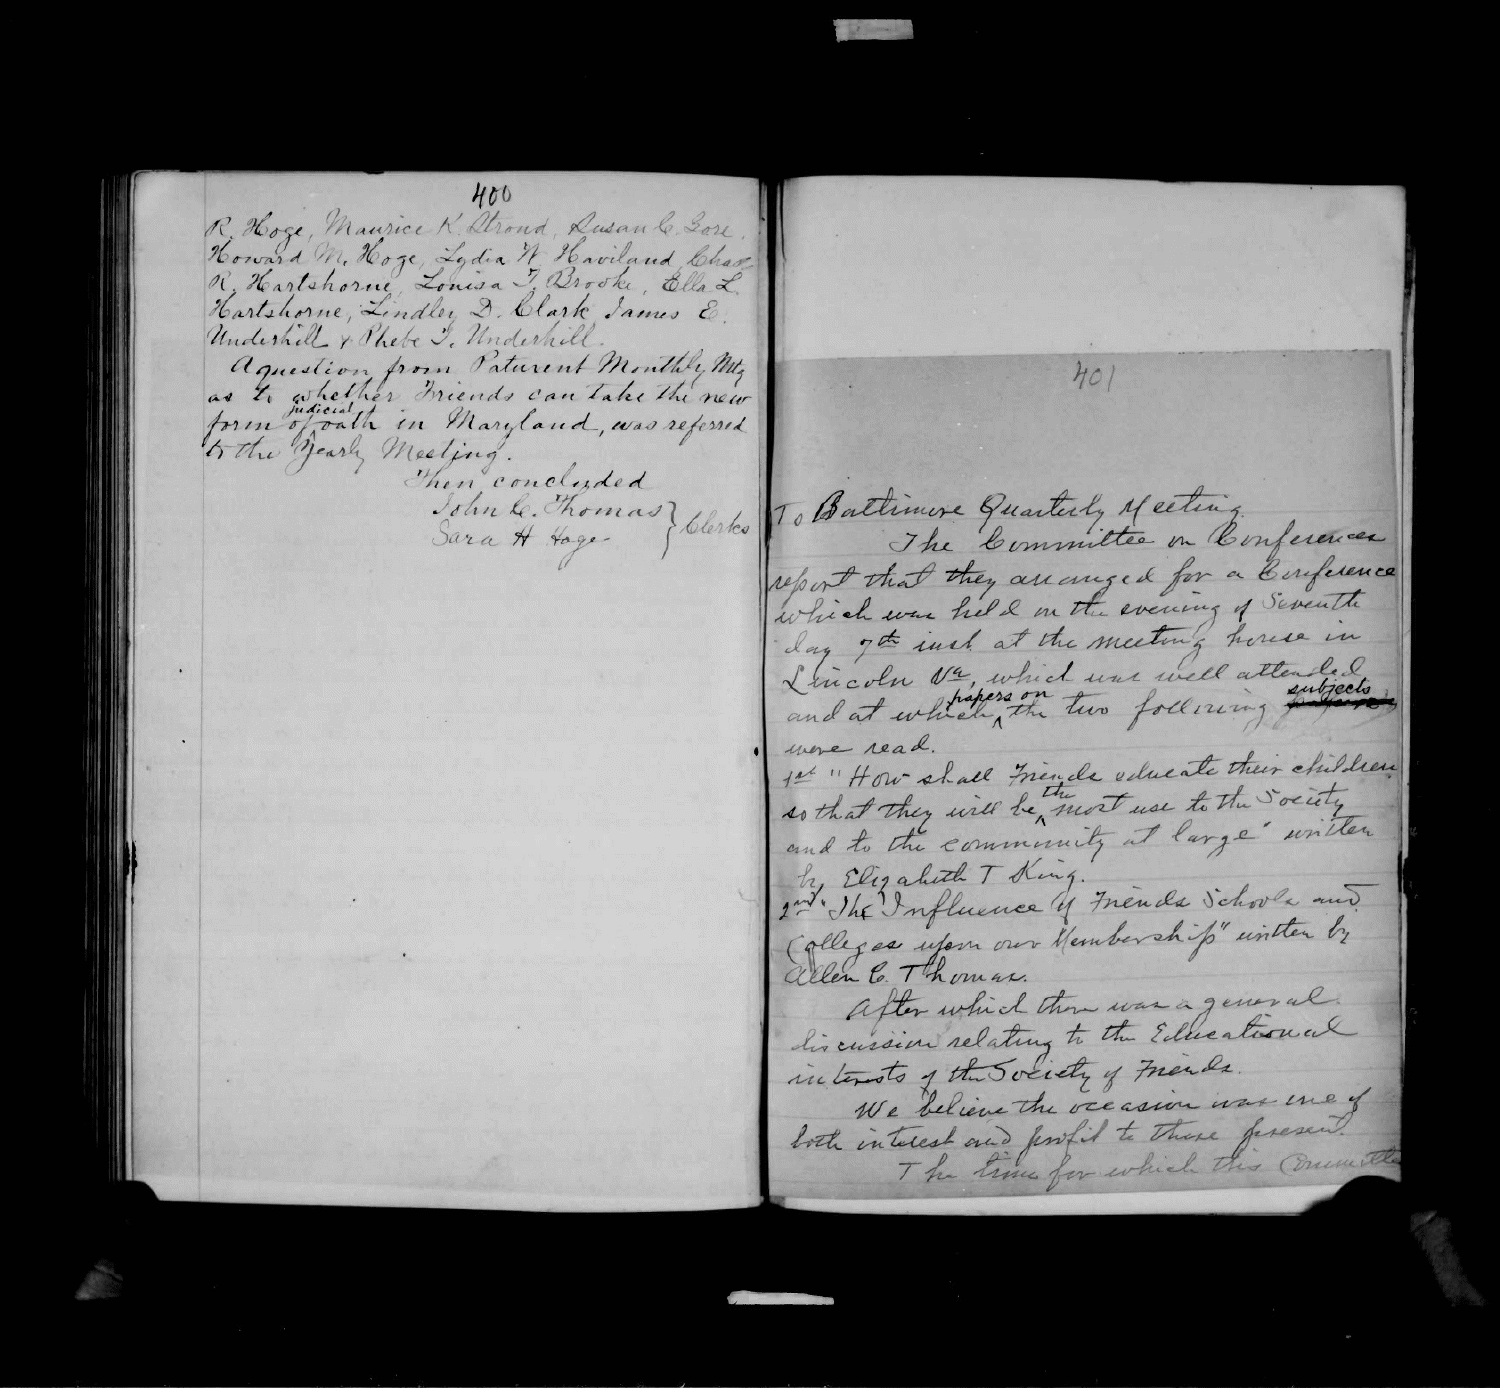 400
R. Hoge, Maurice K. Stroud, Susan C. Gore,
Howard M. Hoge, Lydia W. Haviland, Chas
R. Hartshorne, Louisa T. Brooke, Ella L.
Hartshorne, Lindley D. Clark, James E.
Underhill & Phebe T. Underhill.
A question from Patuxent Monthly Mtg
as to whether Friends can take the new
form of judicial oath in Maryland, was referred
to the Yearly Meeting.
Then concluded
John C. Thomas
Sara H Hoge } Clerks
401
To Baltimore Quarterly Meeting.
The Committee on Conferences
report that they arranged for a Conference
which was held on the evening of Seventh
day 7th inst at the meeting house in
Lincoln Va, which was well attended
and at which papers on the two following subjects
were read.
1st "How shall Friends educate their children
so that they will be the most use to the Society
and to the community at large" written
by Elizabeth T King.
2nd "The Influence of Friends Schools and
Colleges upon our Membership" written by
Allen C. Thomas.
After which there was a general
discussion relating to the Educational
interests of the Society of Friends.
We believe the occasion was one of
both interest and profit to those present.
The time for which this Committee